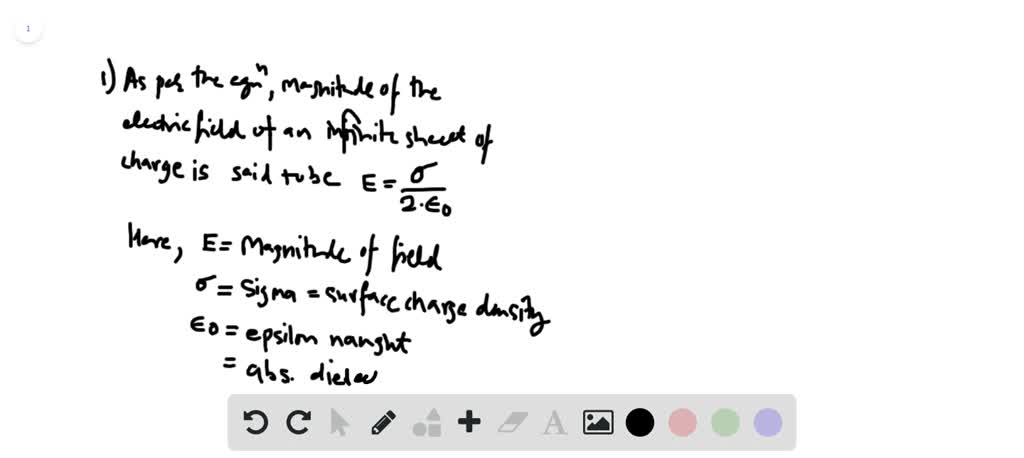 1
1) As per the eqnⁿ, magnitude of the
electric field of an infinite sheet of
charge is said to be E = σ / 2·ε0
Here, E = Magnitude of field
σ = Sigma = surface charge density
ε0 = epsilon nanght
= abs. dielec
A